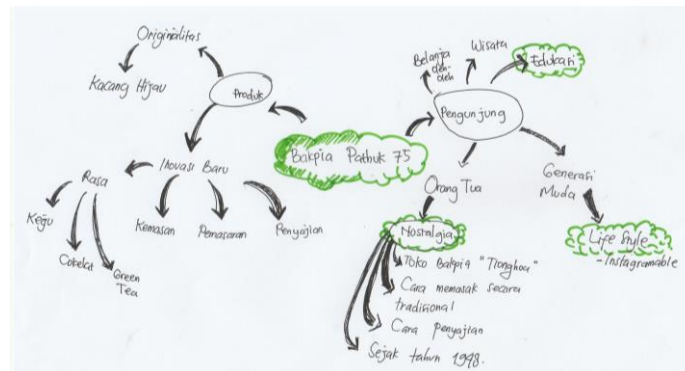 Originalitas
Kacang Hijau
Produk
Bakpia Pathuk 75
Inovasi Baru
Rasa
Keju
Cokelat
Green
Tea
Kemasan
Pemasaran
Penyajian
Pengunjung
Belanja
oleh-
oleh
Wisata
Edukasi
Orang Tua
Nostalgia
Toko Bakpia "Tionghoa"
Cara memasak secara
tradisional
Cara penyajian
Sejak tahun 1948.
Generasi
Muda
Life Style
-Instagramable